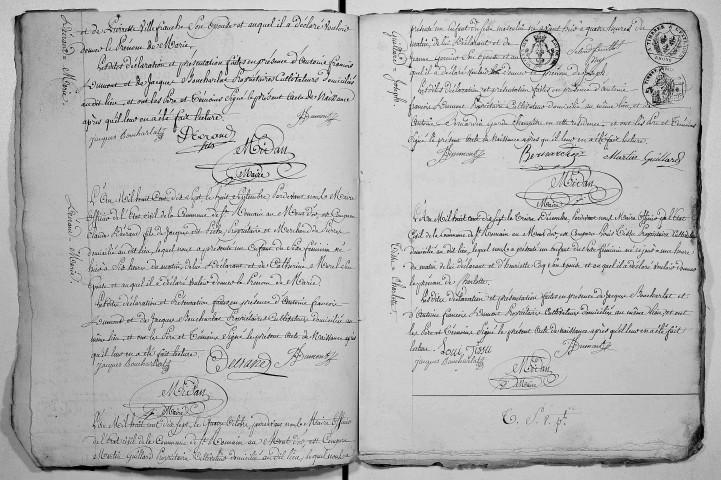 et de Pierrette Villefranche son épouse et auquel il a déclaré vouloir
donner le prénom de Marie.
Lesdites déclaration et présentation faites en présence d'Antoine françois
Dumont et de Jacques Boucharlat Propriétaires Cultivateurs domiciliés
audit lieu, et ont les Père et témoins Signé le présent acte de Naissance
après qu'il leur en a été fait lecture
Jacques Boucharlat Durand fils Dumont
Médan
Maire
Durand = Marie
L'An Mil huit Cent dix sept le huit Septembre, Pardevant nous le Maire
Officier de l'état civil de la Commune de St. Romain au Mont d'or, est Comparu
Claude Durand fils de Jacques dit Propriétaire et Marchand de Pierre
domicilié audit lieu, lequel nous a présenté un Enfant du Sexe féminin né
heures du matin, de lui Déclarant et de Catherine Morel Son
épouse, et auquel il a déclaré vouloir donner le Prénom de Marie
Lesdites déclaration et Présentation faites en présence d'Antoine françois
Dumont et de Jacques Boucharlat Propriétaires Cultivateurs domiciliés au
même lieu, et ont les Père et témoins Signé le présent Acte de Naissance après
qu'il leur en a été fait lecture.
Jacques Boucharlat Durand Dumont
Médan
Maire
Durand = Marie
L'An Mil huit cent dix sept, le Octobre, pardevant nous le Maire Officier
de l'état civil de la Commune de St Romain au Mont d'or, est Comparu
Martin Guillard Propriétaire Cultivateur domicilié au dit lieu, lequel nous a
présenté un Enfant du Sexe masculin né à quatre heures du
matin, de lui Déclarant et de
jeanne Son épouse et auquel
il a déclaré vouloir donner le prénom de Joseph
Lesdites déclaration et présentation faites en présence d'antoine
françois Dumont Propriétaire Cultivateur domicilié au même lieu, et de
Antoine garde champêtre en cette résidence, et ont les Père et Témoins
Signé le présent acte de Naissance après qu'il leur en a été fait lecture
Dumont Martin Guillard
Médan
Maire
Guillard = Joseph
L'An Mil huit cent dix sept, le Treize Décembre, pardevant nous Maire Officier de l'Etat
Civil de la Commune de St Romain au Mont d'or, est Comparu Louis Tissu Propriétaire Cultivateur
domicilié au dit lieu, lequel nous a présenté un enfant du Sexe féminin né
du matin de lui déclarant et d'henriette Coq Son épouse et auquel il a déclaré vouloir donner
le prénom de Charlotte.
Lesdites déclaration et présentation faites en présence de Jacques Boucharlat et
d'Antoine françois Dumont Propriétaires Cultivateurs domiciliés au même lieu, et ont
les Père et témoins Signé le présent acte de naissance après qu'il leur en a été fait
lecture. Loui Tissu Dumont
Jacques Boucharlat
Médan
Maire
Tissu = Charlotte